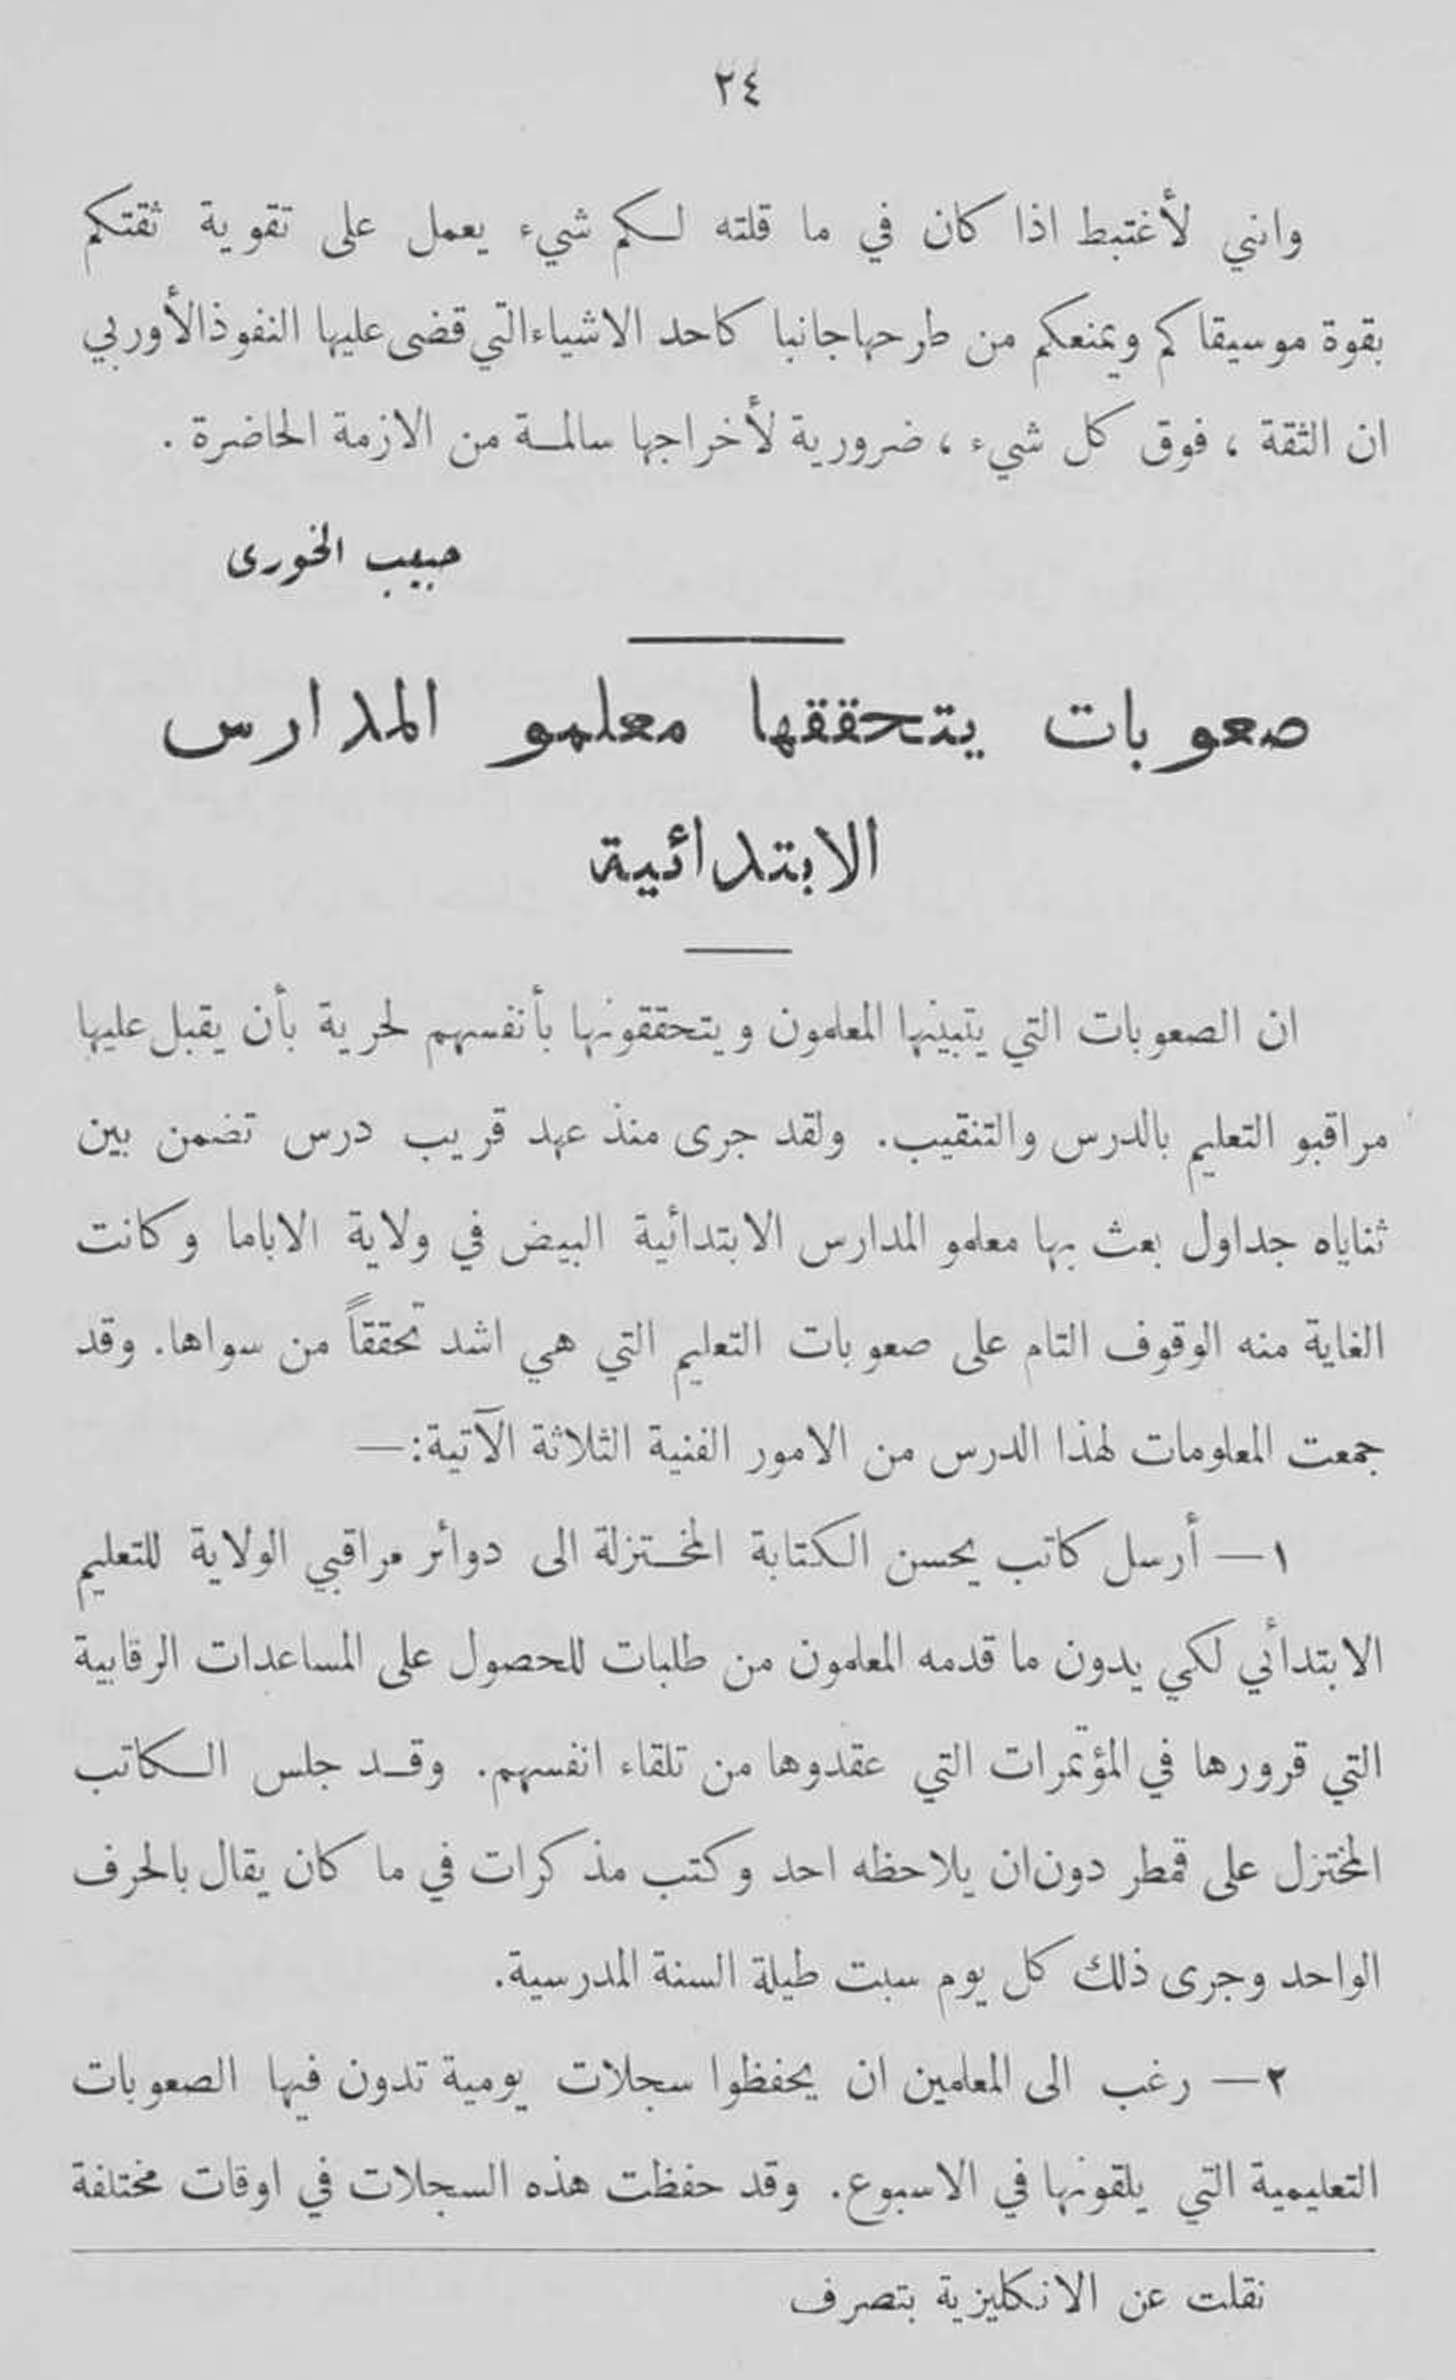 ٢٤
وانني لأغتبط اذا كان في ما قلته لكم شيء يعمل على تقوية ثقتكم
بقوة موسيقاكم ويمنعكم من طرحها جانبا كاحد الاشياء التي قضى عليها النفوذ الأوربي
ان الثقة ، فوق كل شيء ، ضرورية لأخراجها سالمة من الازمة الحاضرة .
حبيب الخوري
صعوبات يتحققها معلمو المدارس
الابتدائية
ان الصعوبات التي يتبينها المعلمون ويتحققونها بأنفسهم لحرية بأن يقبل عليها
مراقبو التعليم بالدرس والتنقيب. ولقد جرى منذ عهد قريب درس تضمن بين
ثناياه جداول بعث بها معلمو المدارس الابتدائية البيض في ولاية الاباما وكانت
الغاية منه الوقوف التام على صعوبات التعليم التي هي اشد تحققاً من سواها. وقد
جمعت المعلومات لهذا الدرس من الامور الفنية الثلاثة الآتية:—
١— أرسل كاتب يحسن الكتابة المختزلة الى دوائر مراقبي الولاية للتعليم
الابتدائي لكي يدون ما قدمه المعلمون من طلبات للحصول على المساعدات الرقابية
التي قرورها في المؤتمرات التي عقدوها من تلقاء انفسهم. وقد جلس الكاتب
المختزل على قمطر دون ان يلاحظه احد وكتب مذكرات في ما كان يقال بالحرف
الواحد وجرى ذلك كل يوم سبت طيلة السنة المدرسية.
٢— رغب الى المعلمين ان يحفظوا سجلات يومية تدون فيها الصعوبات
التعليمية التي يلقونها في الاسبوع. وقد حفظت هذه السجلات في اوقات مختلفة
نقلت عن الانكليزية بتصرف